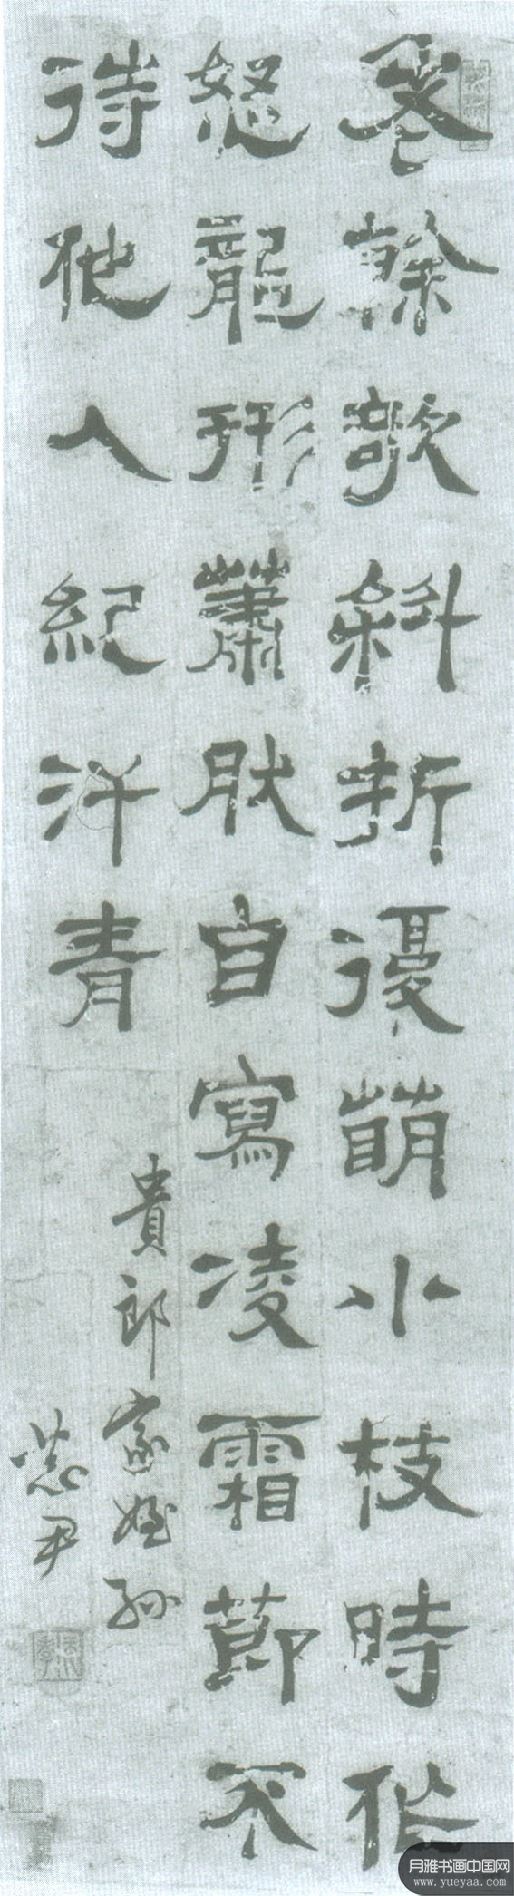 餘欹斜折復萌小枝時作
怒龍形蕭肰自寫凌霜節不
待他人紀汗青
貴郎家姪孫
尹
月雅书画中国网
www.yueyaa.com